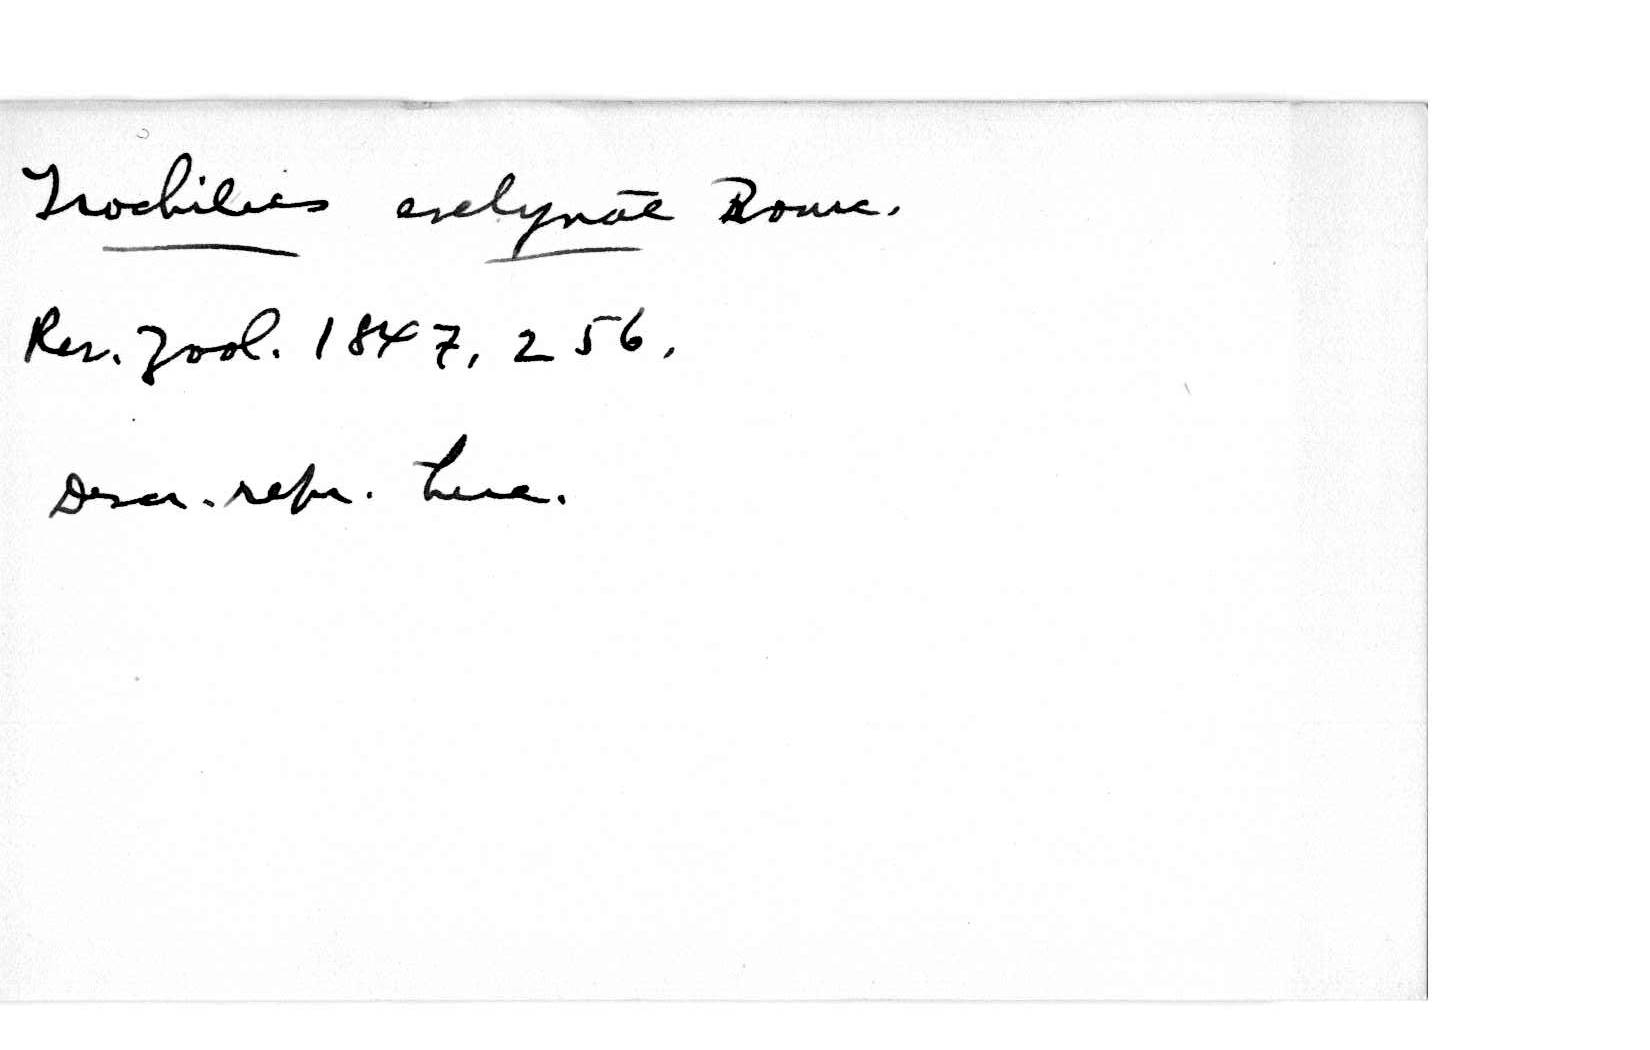 Trochilus evelynae Bourc.
Rev. Zool. 1847, 256.
Descr. repr. here.